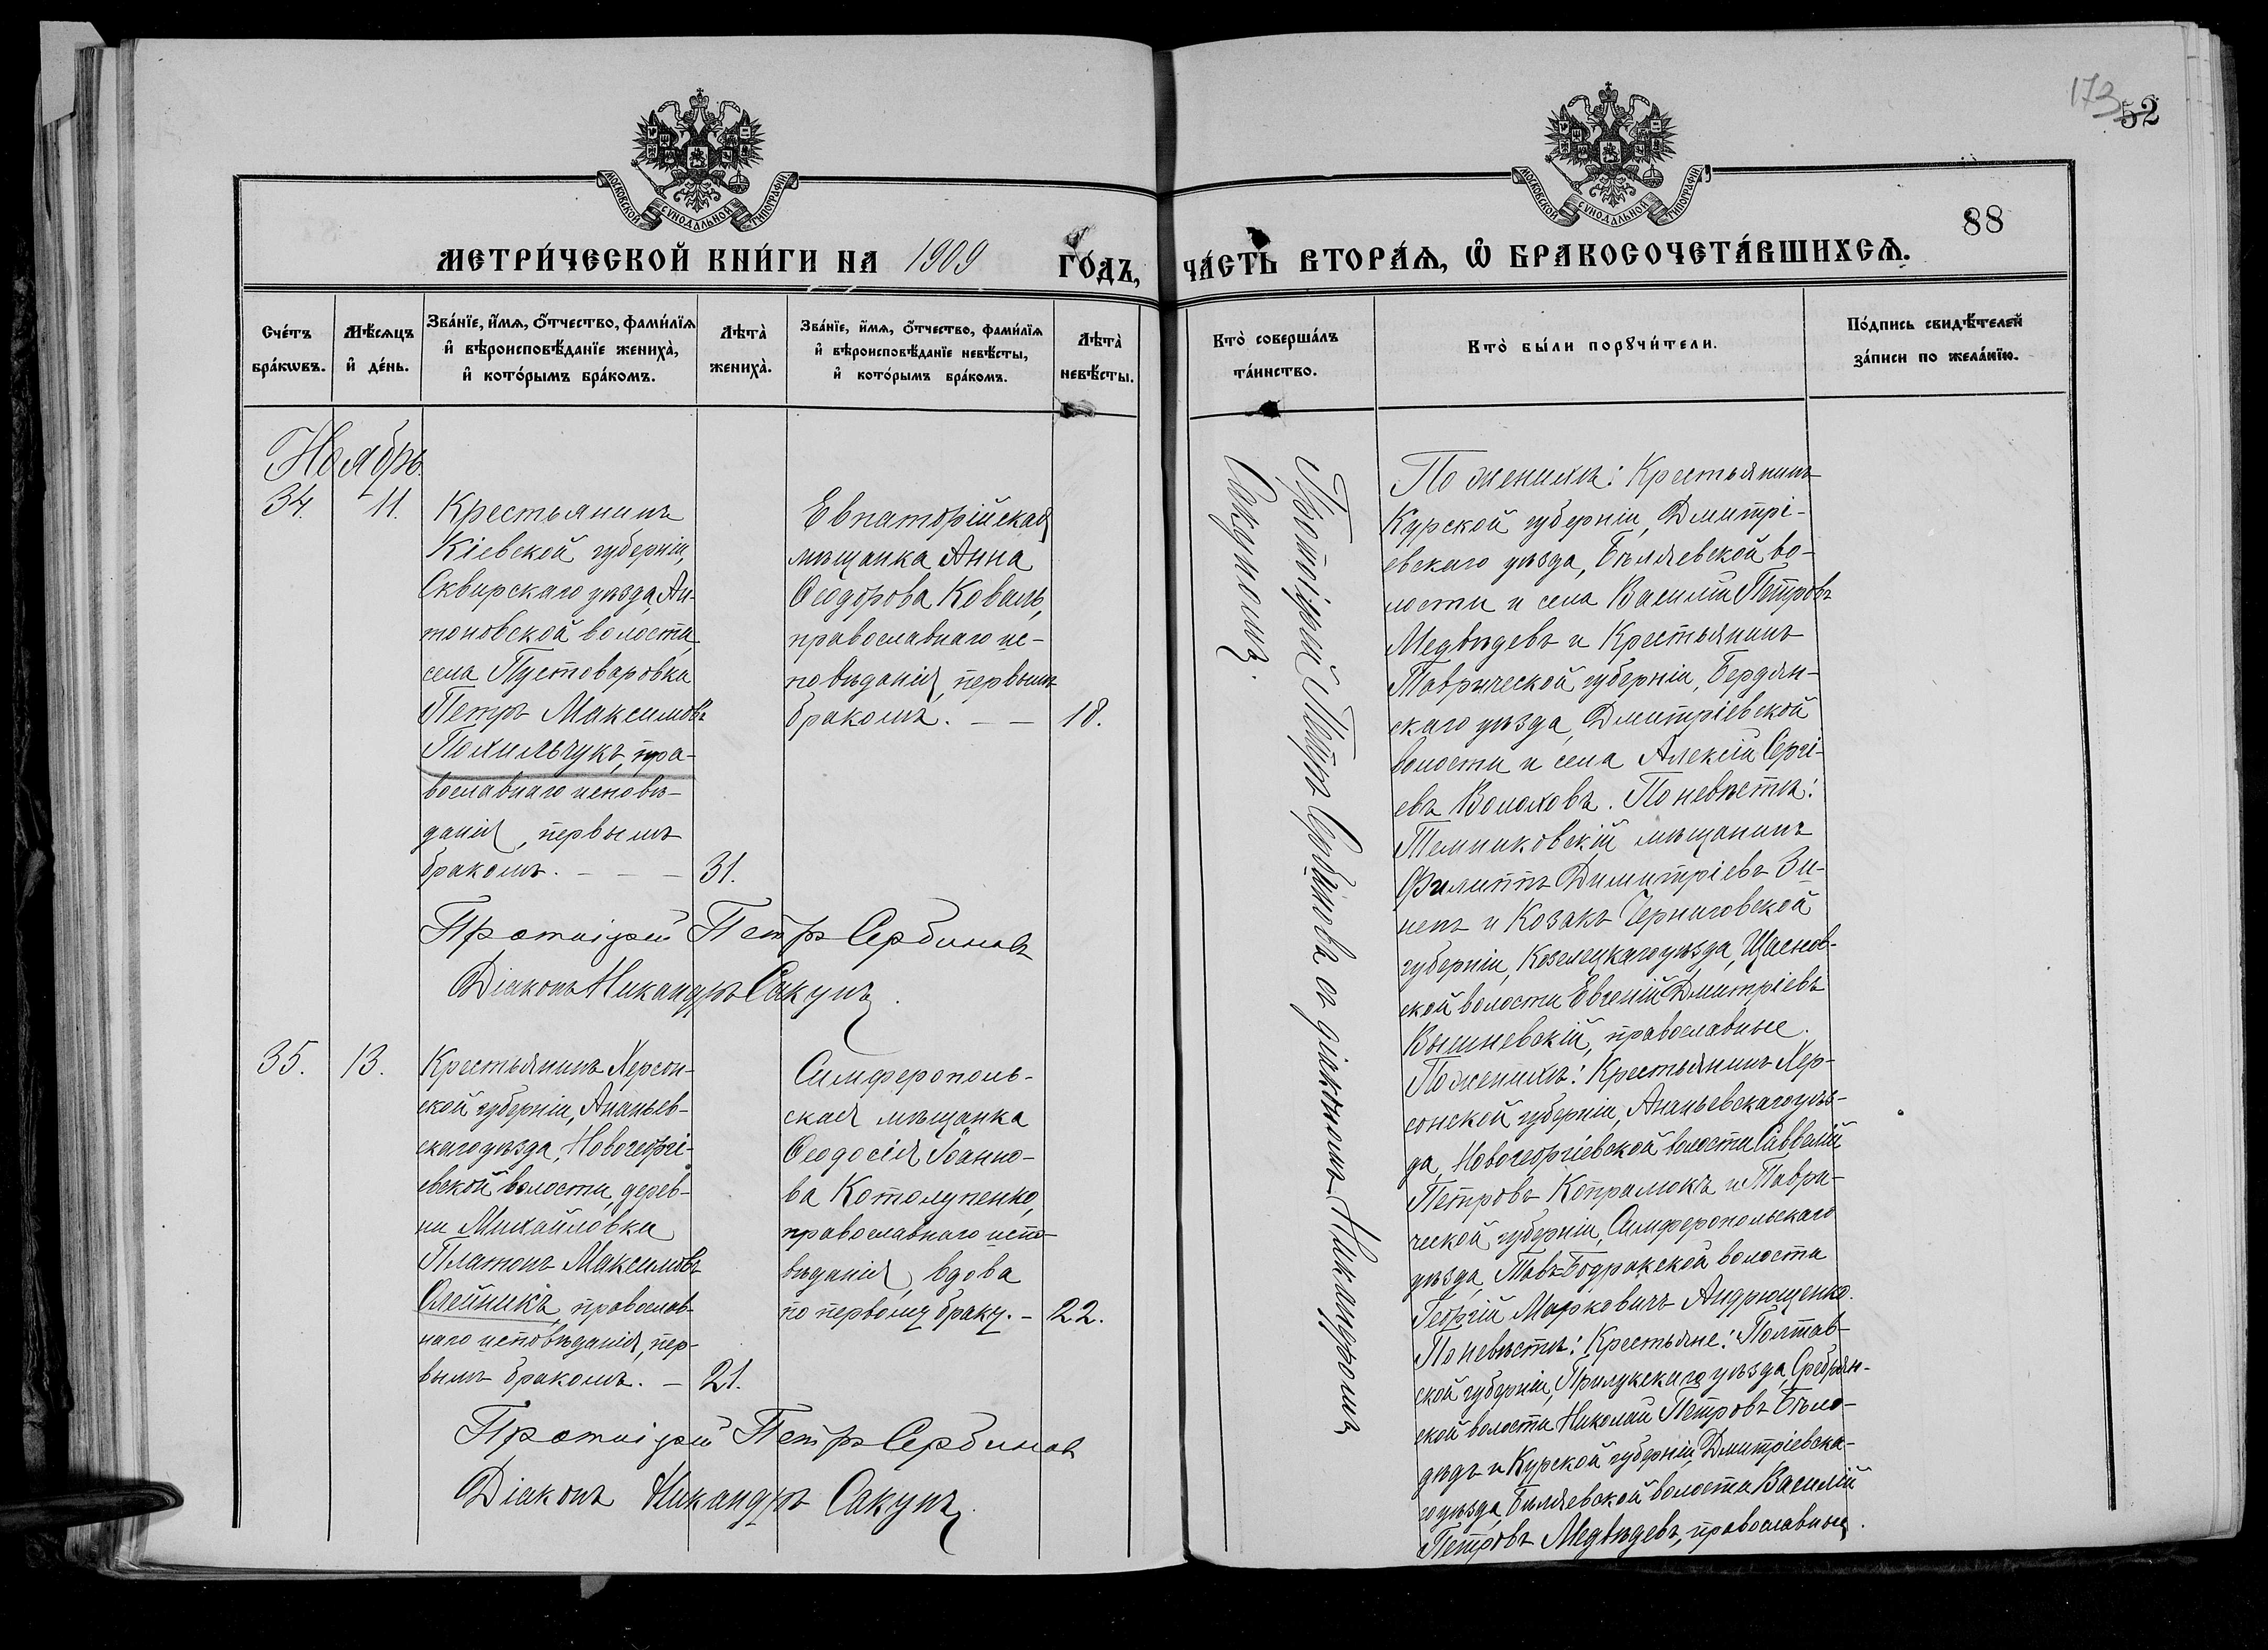 173
52
88
МОСКОВСКОЙ СѴНОДАЛЬНОЙ ТИПОГРАФІИ
МОСКОВСКОЙ СѴНОДАЛЬНОЙ ТИПОГРАФІИ
МЕТРИ́ЧЕСКОЙ КНИ́ГИ НА 1909 ГО́ДЪ, ЧА́СТЬ ВТОРА́Ѧ, Ѽ БРАКОСОЧЕТА́ВШИХСѦ.
Сче́тъ
бра́кѡвъ.
Мѣ́сѧцъ
и҆ де́нь.
Зва́нїе, и҆́мѧ, ѻ҆́тчество, фами́лїѧ
и҆ вѣроисповѣ́данїе жениха̀,
и҆ кото́рымъ бра́комъ.
Лѣта̀
жениха̀.
Зва́нїе, и҆́мѧ, ѻ҆́тчество, фами́лїѧ
и҆ вѣроисповѣ́данїе невѣ́сты,
и҆ кото́рымъ бра́комъ.
Лѣта̀
невѣ́сты.
Кто̀ соверша́лъ
та́инство.
Кто̀ бы́ли порꙋчи́тели.
По́дпись свидѣ́телей
за́писи по жела́нїю.
Ноябрь.
34.
11.
Крестьянинъ
Кіевской губерніи,
Сквирскаго уѣзда, Ан-
тоновской волости,
села Пустоваровка
Петръ Максимовъ
Похильчукъ, пра-
вославнаго исповѣ-
данія, первымъ
бракомъ. - - -
31.
Евпаторійская
мѣщанка Анна
Ѳеодорова Коваль,
православнаго ис-
повѣданія, первымъ
бракомъ. - -
18.
Протоіерей Петръ Сербиновъ
Діаконъ Никандръ Сакунъ.
35.
13.
Крестьянинъ Херсон-
ской губерніи, Ананьев-
скаго уѣзда, Новогеоргі-
евской волости, дерев-
ни Михайловки
Платонъ Максимовъ
Олейникъ, православ-
наго исповѣданія, пер-
вымъ бракомъ. -
21.
Симферополь-
ская мѣщанка
Ѳеодосія Іоанно-
ва Котолупенко,
православнаго испо-
вѣданія, вдова
по первому браку. -
22.
Протоіерей Петръ Сербиновъ
Діаконъ Никандръ Сакунъ.
Протоіерей Петръ Сербиновъ съ діакономъ Никандромъ
Сакуномъ.
По женихѣ: Крестьянинъ
Курской губерніи, Дмитрі-
евскаго уѣзда, Бѣляевской во-
лости и села Василій Петровъ
Медвѣдевъ и Крестьянинъ
Таврической губерніи, Бердян-
скаго уѣзда, Дмитріевской
волости и села Алексій Сергі-
евъ Волоховъ. По невѣстѣ:
Темниковскій мѣщанинъ
Филиппъ Димитріевъ Зи-
нен и Козакъ Черниговской
губерніи, Козелецкаго уѣзда, Щаснов-
ской волости Евгеній Дмитріевъ
Вышневскій, православные.
По женихѣ: Крестьянинъ Хер-
сонской губерніи, Ананьевскаго уѣз-
да, Новогеоргіевской волости Савелій
Петровъ Копралюкъ и Таври-
ческой губерніи, Симферопольскаго
уѣзда, Тавъ-Бодракской волости
Георгій Марковичъ Андрющенко.
По невѣстѣ: Крестьяне: Полтав-
ской губерніи, Прилукскаго уѣзда, Сребрян-
ской волости Николай Петровъ Бѣло-
дѣдъ и Курской губерніи Дмитріевска-
го уѣзда, Бѣляевской волости Василій
Петровъ Медвѣдевъ, православные.